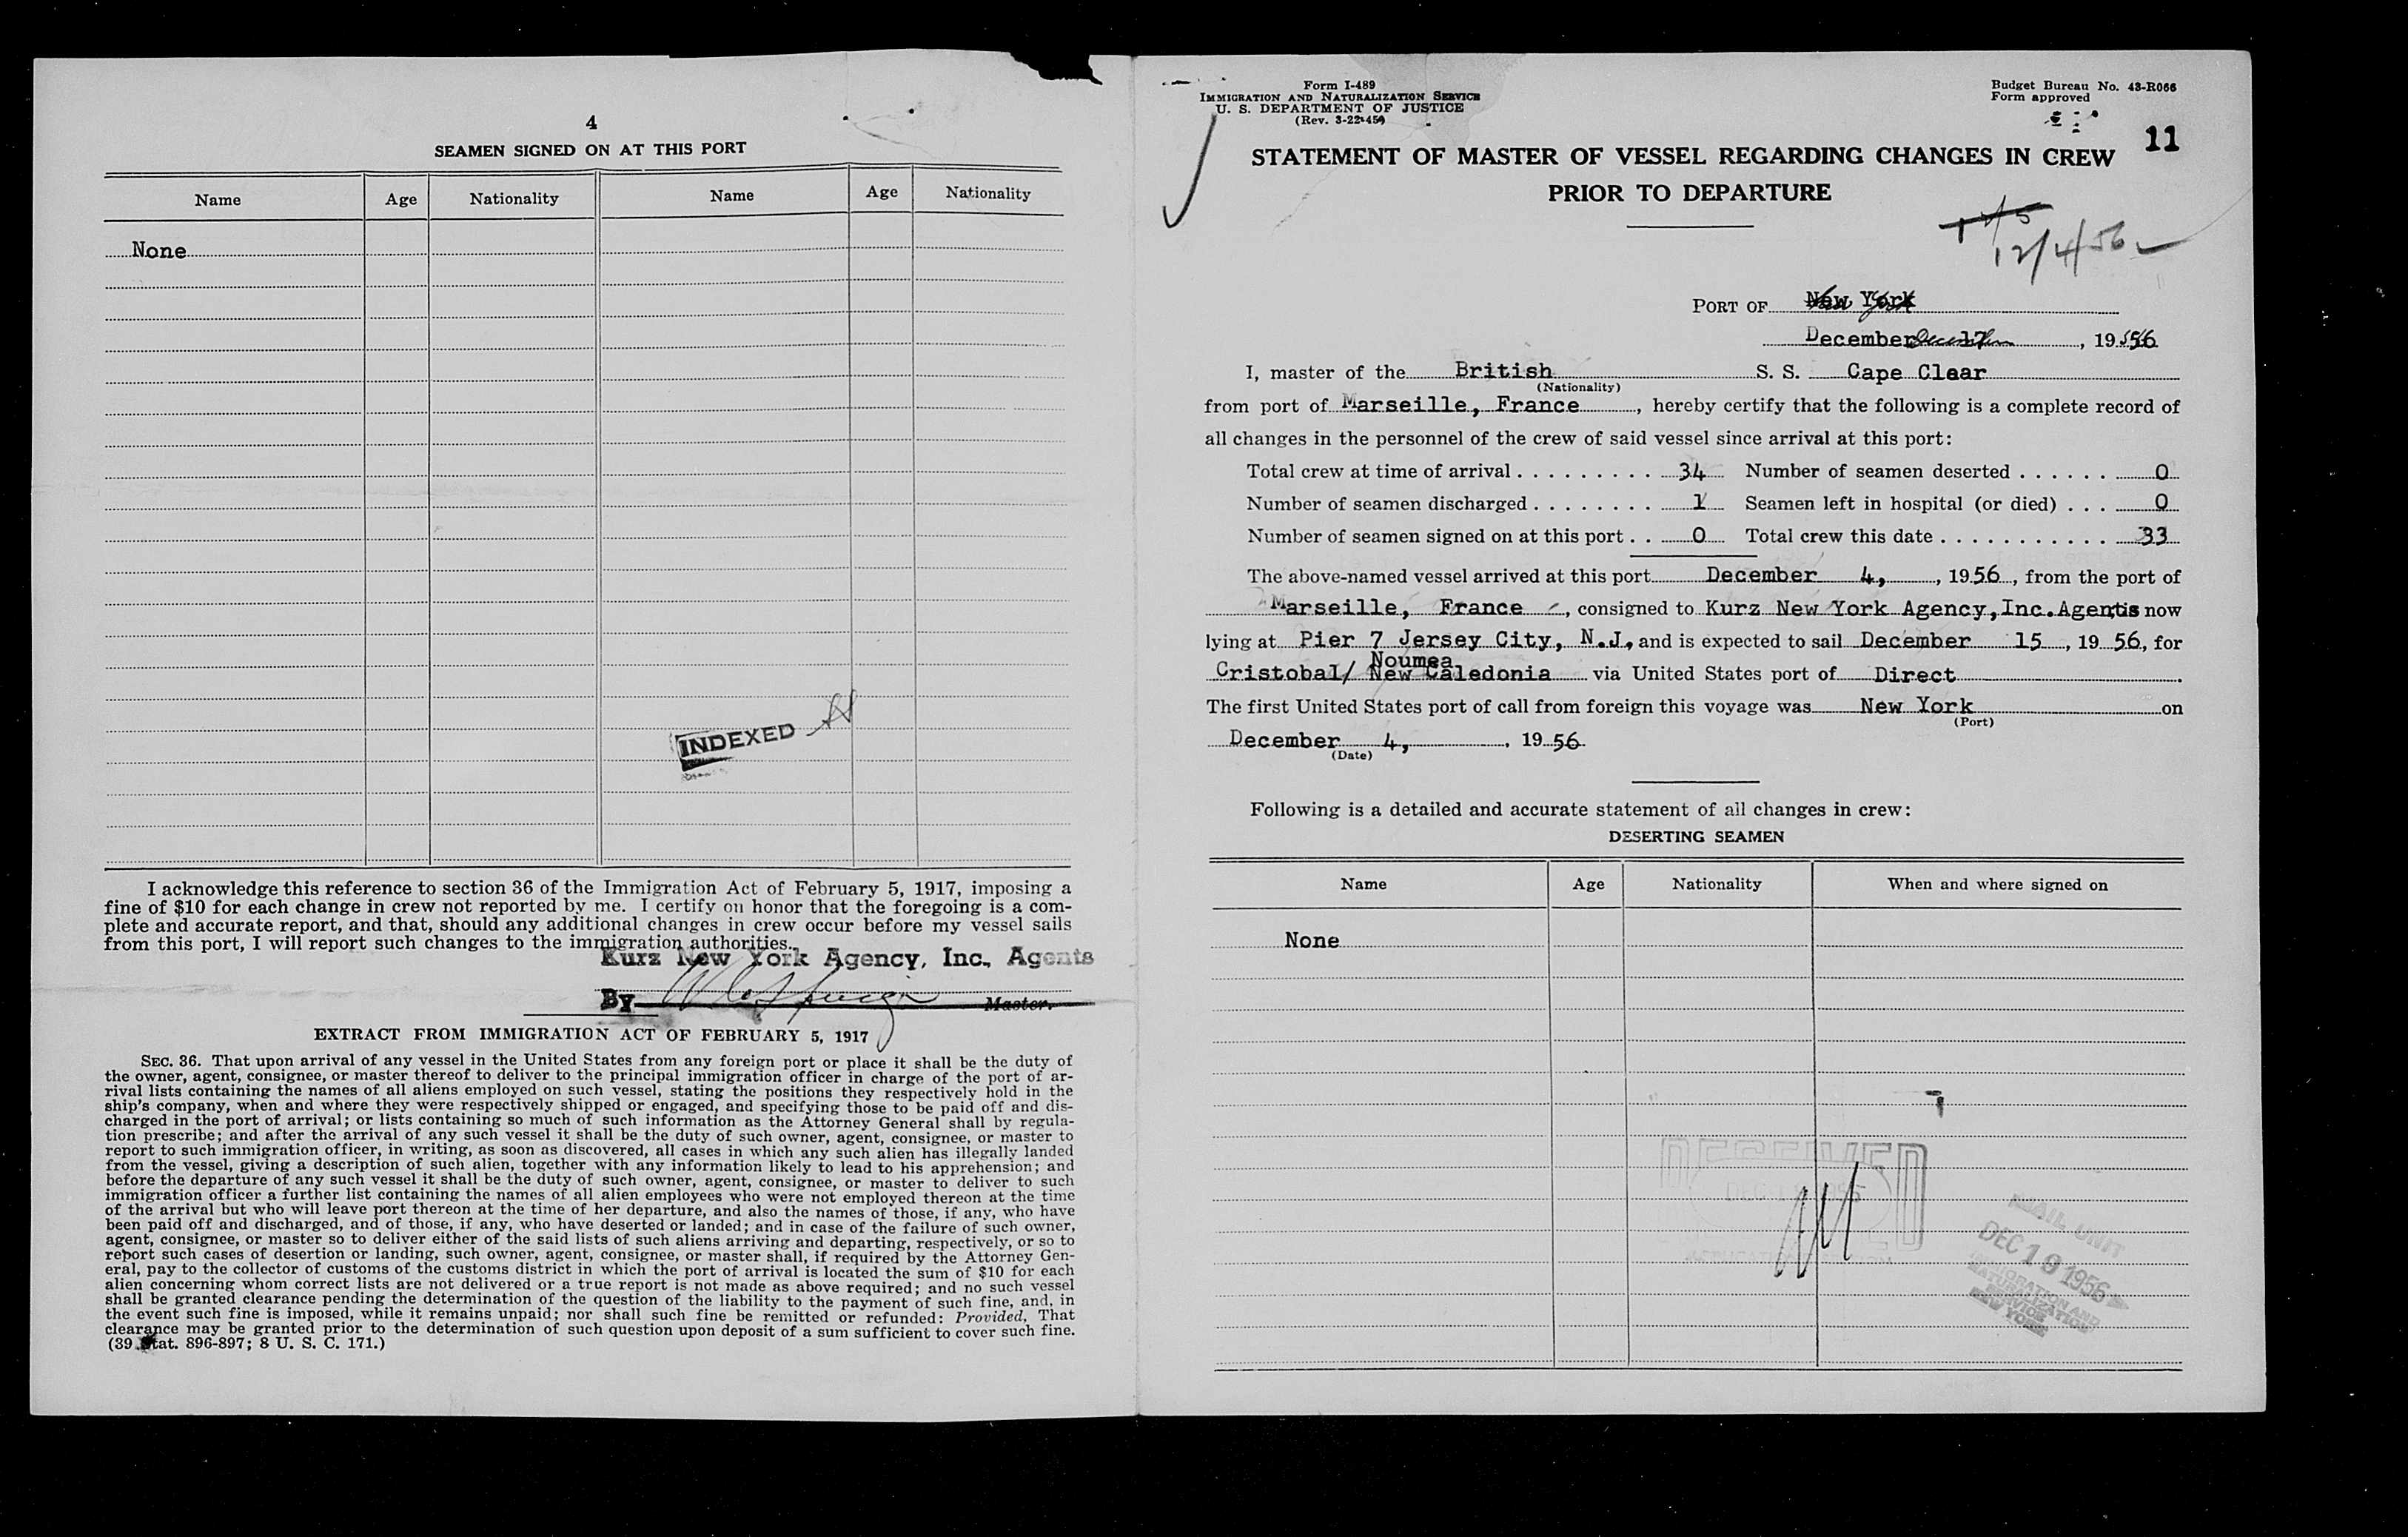 4
SEAMEN SIGNED ON AT THIS PORT
Name Age Nationality Name Age Nationality
None
INDEXED
I acknowledge this reference to section 36 of the Immigration Act of February 5, 1917, imposing a
fine of $10 for each change in crew not reported by me. I certify on honor that the foregoing is a com-
plete and accurate report, and that, should any additional changes in crew occur before my vessel sails
from this port, I will report such changes to the immigration authorities.
Kurz New York Agency, Inc., Agents
By Master.
EXTRACT FROM IMMIGRATION ACT OF FEBRUARY 5, 1917
SEC. 36. That upon arrival of any vessel in the United States from any foreign port or place it shall be the duty of
the owner, agent, consignee, or master thereof to deliver to the principal immigration officer in charge of the port of ar-
rival lists containing the names of all aliens employed on such vessel, stating the positions they respectively hold in the
ship's company, when and where they were respectively shipped or engaged, and specifying those to be paid off and dis-
charged in the port of arrival; or lists containing so much of such information as the Attorney General shall by regula-
tion prescribe; and after the arrival of any such vessel it shall be the duty of such owner, agent, consignee, or master to
report to such immigration officer, in writing, as soon as discovered, all cases in which any such alien has illegally landed
from the vessel, giving a description of such alien, together with any information likely to lead to his apprehension; and
before the departure of any such vessel it shall be the duty of such owner, agent, consignee, or master to deliver to such
immigration officer a further list containing the names of all alien employees who were not employed thereon at the time
of the arrival but who will leave port thereon at the time of her departure, and also the names of those, if any, who have
been paid off and discharged, and of those, if any, who have deserted or landed; and in case of the failure of such owner,
agent, consignee, or master so to deliver either of the said lists of such aliens arriving and departing, respectively, or so to
report such cases of desertion or landing, such owner, agent, consignee, or master shall, if required by the Attorney Gen-
eral, pay to the collector of customs of the customs district in which the port of arrival is located the sum of $10 for each
alien concerning whom correct lists are not delivered or a true report is not made as above required; and no such vessel
shall be granted clearance pending the determination of the question of the liability to the payment of such fine, and, in
the event such fine is imposed, while it remains unpaid; nor shall such fine be remitted or refunded: Provided, That
clearance may be granted prior to the determination of such question upon deposit of a sum sufficient to cover such fine.
(39 Stat. 896-897; 8 U. S. C. 171.)
Form I-489
IMMIGRATION AND NATURALIZATION SERVICE
U. S. DEPARTMENT OF JUSTICE
(Rev. 3-22-45)
Budget Bureau No. 43-R066
Form approved
11
STATEMENT OF MASTER OF VESSEL REGARDING CHANGES IN CREW
PRIOR TO DEPARTURE
12/4/56
PORT OF New York
December 17, 1956
I, master of the British S. S. Cape Clear
(Nationality)
from port of Marseille, France, hereby certify that the following is a complete record of
all changes in the personnel of the crew of said vessel since arrival at this port:
Total crew at time of arrival 34 Number of seamen deserted 0
Number of seamen discharged 1 Seamen left in hospital (or died) 0
Number of seamen signed on at this port 0 Total crew this date 33
The above-named vessel arrived at this port December 4, , 1956, from the port of
Marseille, France, consigned to Kurz New York Agency, Inc. Agents, is now
lying at Pier 7 Jersey City, N.J., and is expected to sail December 15, 1956, for
Noumea
Cristobal/ New Caledonia via United States port of Direct.
The first United States port of call from foreign this voyage was New York on
(Port)
December 4, , 1956
(Date)
Following is a detailed and accurate statement of all changes in crew:
DESERTING SEAMEN
Name Age Nationality When and where signed on
None
RECEIVED
MAIL UNIT
DEC 19 1956
IMMIGRATION AND
NATURALIZATION
SERVICE
NEW YORK